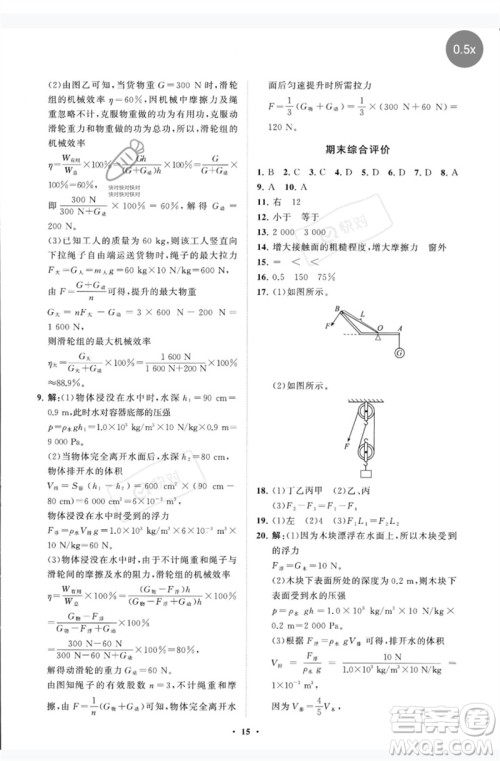 0.5x
(2)由图乙可知,当货物重 G = 300 N 时,滑轮
组的机械效率
η=60%,若机械中摩擦力及绳
重忽略不计,克服滑轮重力和
物重做的功为总功,克服物重做的功为有用功,滑轮
组的机械效率
η=W有用/W总×100%=Gh/(G+G动)h×100%=G/(G+G动)×100%=
60%,
即 300 N/(300 N+G动)×100%=60%,
解得:G动=200 N
(3)已知工人的质量为 60 kg,当工人竖直向
下拉绳子自由端运送货物时,绳子的最大拉力
F大=G人=m人g=60 kg×10 N/kg=600 N,
由 F=(G+G动)/n 可得,提升的最大物重
G大=nF大-G动=3×600 N-200 N=
1 600 N
则滑轮组的最大机械效率
η大=G大/(G大+G动)×100%=1 600 N/(1 600 N+200 N)×100%
≈88.9%。
9. 解:(1)物体浸没在水中时,水深 h1=90 cm=
0.9 m,此时水对容器底部的压强
p=ρ水gh1=1.0×10³ kg/m³×10 N/kg×0.9 m=
9 000 Pa。
(2)当物体完全离开水面后,水深 h2=80 cm,
物体排开水的体积
V排=S(h1-h2)=600 cm²×(90 cm-80 cm)=
6 000 cm³=6×10⁻³ m³
物体浸没时受到的浮力
F浮=ρ水V排g=1.0×10³ kg/m³×6×10⁻³ m³×
10 N/kg=60 N
(3)物体浸没在水中时,由于不计绳重和绳子与
滑轮间的摩擦,则滑轮组的机械效率
η=W有用/W总×100%=(G物-F浮)h/(G物+G动-F浮)h×100%=
(G物-F浮)/(G物+G动-F浮)×100%=
(300 N-60 N)/(300 N+G动-60 N)×100%=80%,
解得动滑轮的重力 G动=60 N,
由图知绳子的有效股数 n=3,物体完全离开水
面后匀速提升时所需拉力
F=1/3(G物+G动)=1/3×(300 N+60 N)=
120 N。
期末综合评价
1. B 2. C 3. C 4. B 5. B 6. B 7. D 8. D
9. A 10. A
11. 右 12
12. 小于 等于
13. 2 000 3
14. 增大接触面的粗糙程度,增大摩擦力 窗外
15. = < <
16. 0.5 150 75
17. (1)如图所示
B
L
F
O
A
G
(2)如图所示
F
18. (1)丁乙丙甲 (2)乙、丙
(3)F2-F1=F4-F3
19. (1)左 (2)4 (3)F1L1
20. 解:(1)因木块漂浮在水面上,所以木块受到
的浮力
F浮=G=10 N
(2)木块下底面的深度为 0.2 m,则木块下底
面受到的压强
p=ρ水gh=1.0×10³ kg/m³×10 N/kg×
0.2 m=2×10³ Pa
(3)根据 F浮=ρ水gV排可得,木块排开水的
体积 V排=F浮/ρ水g=10 N/(1.0×10³ kg/m³×10 N/kg)=
1×10⁻³ m³,
因为 V排=4/5V木,
• 15 •